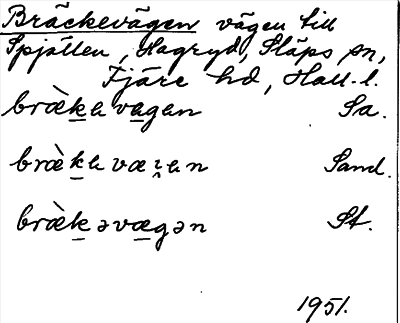 Bräckevägen vägen till
Spjällen, Hagryd, Släps sn,
Fjäre hd, Hall. l.
bræ̀ḵavagan Sa.
bræ̀ḵavæɪ̯an Sand.
bræ̀ḵəvægən St.
1951.